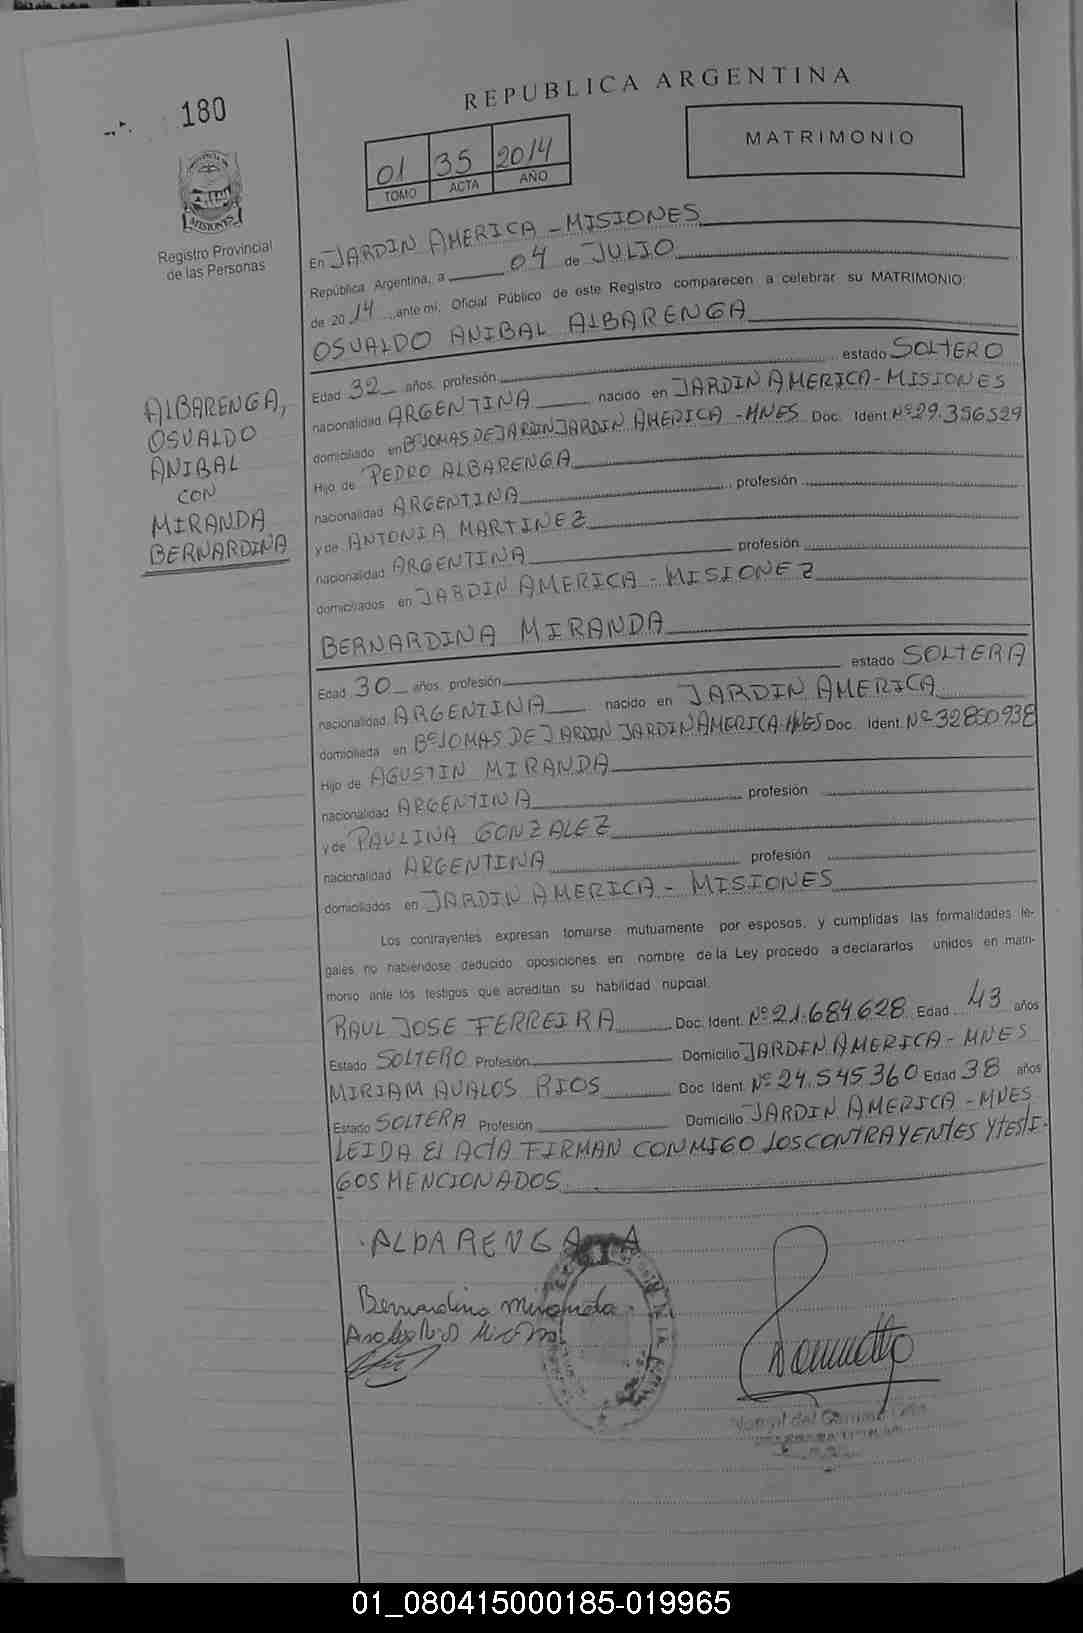 180
PROVINCIA DE
MISIONES
Registro Provincial
de las Personas
ALBARENGA,
OSVALDO
ANIBAL
CON
MIRANDA
BERNARDINA
REPUBLICA ARGENTINA
01 35 2014
TOMO ACTA AÑO
MATRIMONIO
En JARDIN AMERICA - MISIONES
República Argentina, a 04 de JULIO
de 2014 ante mi, Oficial Público de este Registro comparecen a celebrar su MATRIMONIO:
OSVALDO ANIBAL ALBARENGA
Edad 32 años, profesión estado SOLTERO
nacionalidad ARGENTINA nacido en JARDIN AMERICA - MISIONES
domiciliado en Bº LOMAS DE JARDIN JARDIN AMERICA - MNES Doc. Ident. Nº 29.356529
Hijo de PEDRO ALBARENGA
nacionalidad ARGENTINA profesión
y de ANTONIA MARTINEZ
nacionalidad ARGENTINA profesión
domiciliados en JARDIN AMERICA - MISIONEZ
BERNARDINA MIRANDA
Edad 30 años, profesión estado SOLTERA
nacionalidad ARGENTINA nacido en JARDIN AMERICA
domiciliada en Bº LOMAS DE JARDIN JARDIN AMERICA MNES Doc. Ident. Nº 32850938
Hijo de AGUSTIN MIRANDA
nacionalidad ARGENTINA profesión
y de PAULINA GONZALEZ
nacionalidad ARGENTINA profesión
domiciliados en JARDIN AMERICA - MISIONES
Los contrayentes expresan tomarse mutuamente por esposos, y cumplidas las formalidades le-
gales no habiéndose deducido oposiciones en nombre de la Ley procedo a declararlos unidos en matri-
monio ante los testigos que acreditan su habilidad nupcial.
RAUL JOSE FERREIRA Doc. Ident. Nº 21.684.628 Edad 43 años
Estado SOLTERO Profesión Domicilio JARDIN AMERICA - MNES
MIRIAM AVALOS RIOS Doc Ident. Nº 24.545360 Edad 38 años
Estado SOLTERA Profesión Domicilio JARDIN AMERICA - MNES
LEIDA EL ACTA FIRMAN CONMIGO LOS CONTRAYENTES Y TESTI-
GOS MENCIONADOS
ALBARENGA
Bernardina Miranda
01_080415000185-019965